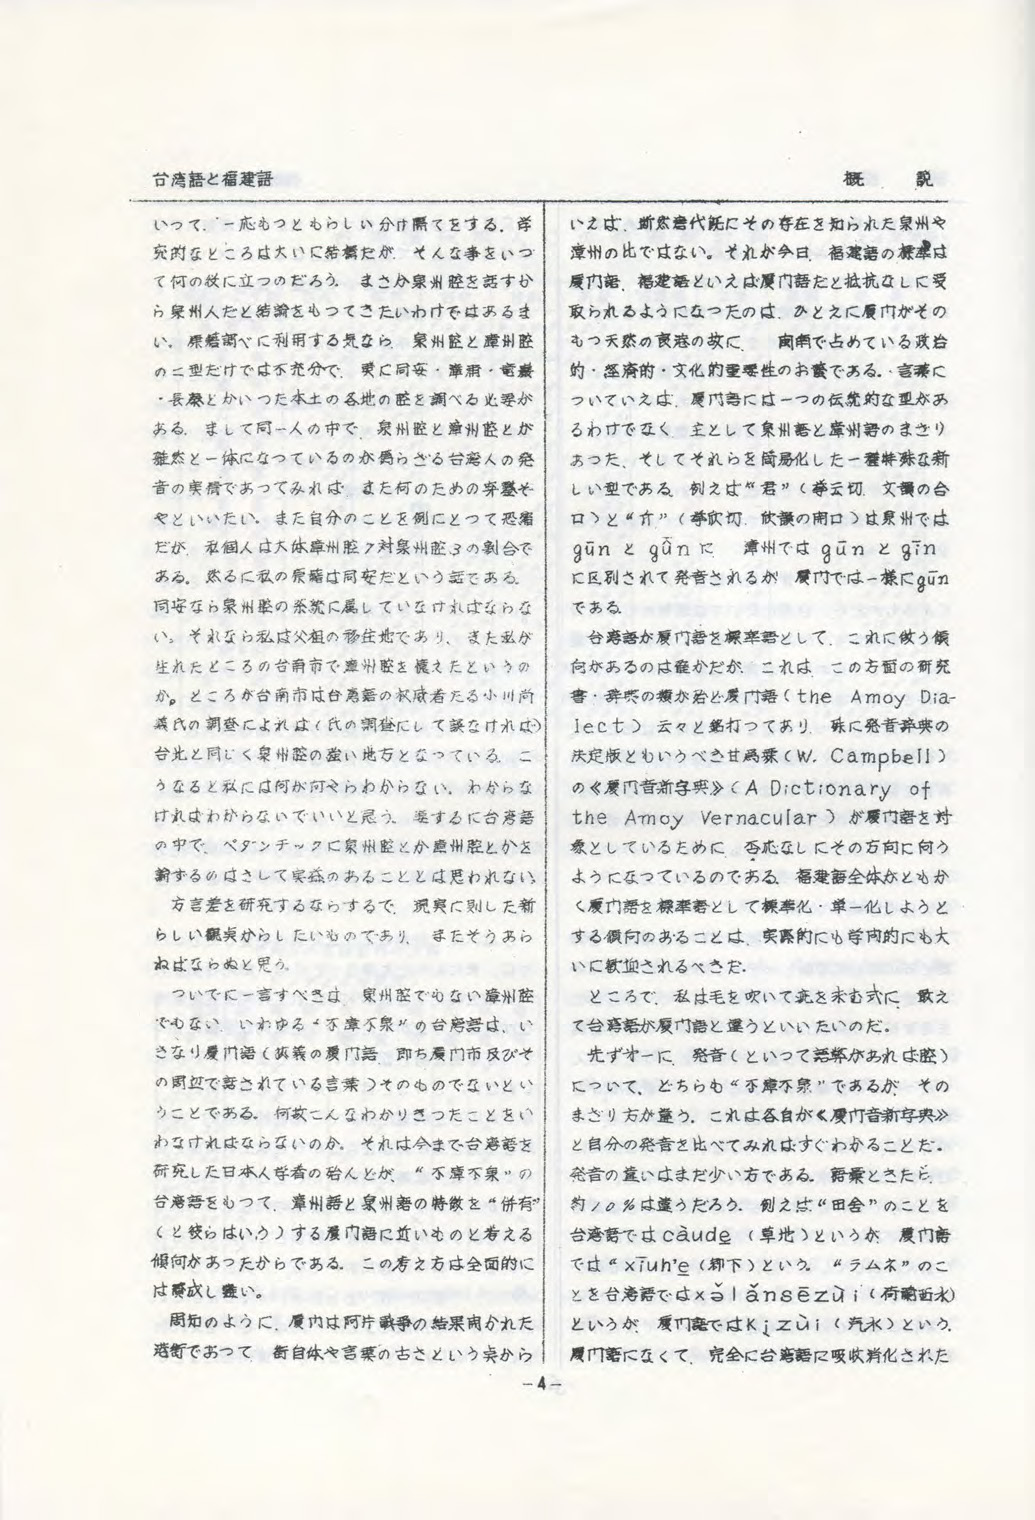 台湾語と福建語
概 説
いつて、一応もつともらしい分け隔てをする。学
究的なところは大いに結構だが、そんな事をいつ
て何の役に立つのだろう。まさか泉州腔を話すか
ら泉州人だと結論をもつてきたいわけではあるま
い。原籍調べに利用する気なら、泉州腔と漳州腔
の二型だけでは不充分で、更に同安・漳浦・竜巌
・長泰とかいつた本土の各地の腔を調べる必要が
ある。まして同一人の中で、泉州腔と漳州腔とが
雑然と一体になつているのが偽らざる台湾人の発
音の実情であつてみれば、また何のための穿鑿そ
やといいたい。また自分のことを例にとつて恐縮
だが、私個人は大体漳州腔7対泉州腔3の割合で
ある。然るに私の原籍は同安だという話である。
同安なら泉州腔の系統に属していなければならな
い。それなら私は父祖の移住地であり、また私が
生れたところの台南市で漳州腔を憶えたというの
か。ところが台南市は台湾語の权威者たる小川尚
義氏の調査によれば(氏の調査にして誤なければ)
台北と同じく泉州腔の強い地方となつている。こ
うなると私には何が何やらわからない。わからな
ければわからないでいいと思う。要するに台湾語
の中で、ペダンチックに泉州腔とか漳州腔とかを
論ずるのはさして実益のあることとは思われない。
方言差を研究するならするで、現実に則した新
らしい観点からしたいものであり、またそうあら
ねばならぬと思う。
ついでに一言すべきは、泉州腔でもない漳州腔
でもない、いわゆる“不漳不泉”の台湾語は、い
きなり厦门語(狭義の厦门語、即ち厦门市及びそ
の周辺で話されている言葉)そのものでないとい
うことである。何故こんなわかりきつたことをい
わなければならないのか。それは今まで台湾語を
研究した日本人学者の殆んどが、“不漳不泉”の
台湾語をもつて、漳州語と泉州語の特徴を“併有”
(と彼らはいう)する厦门語に近いものと考える
傾向があつたからである。この考え方は全面的に
は賛成し難い。
周知のように、厦门は阿片戦争の結果開かれた
港街であつて、街自体や言葉の古さという点から
いえば、断然唐代既にその存在を知られた泉州や
漳州の比ではない。それが今日、福建語の標準は
厦门語、福建語といえば厦门語だと抵抗なしに受
取られるようになつたのは、ひとえに厦门がその
もつ天然の良港の故に、 閩南で占めている政治
的・経済的・文化的重要性のお蔭である。言葉に
ついていえば、厦门語には一つの伝統的な型があ
るわけでなく、主として泉州語と漳州語のまざり
あつた、そしてそれらを簡易化した一種特殊な新
しい型である。例えば“君”(挙云切、文韻の合
口)と“斤”(挙欣切、欣韻の開口)は泉州では
gūn と gṳ̄n に、漳州では gūn と gīn
に区別されて発音されるが、厦门では一様にgūn
である。
台湾語が厦门語を標準語として、これに倣う傾
向があるのは確かだが、これは、この方面の研究
書・辞典の類が殆ど厦门語(the Amoy Dia-
lect) 云々と銘打つてあり、殊に発音辞典の
決定版ともいうべき甘為霖(W. Campbell)
の《厦门音新字典》(A Dictionary of
the Amoy Vernacular ) が厦门語を対
象としているために、否応なしにその方向に向う
ようになつているのである。福建語全体がともか
く厦门語を標準語として標準化・単一化しようと
する傾向のあることは、実際的にも学問的にも大
いに歓迎されるべきだ。
ところで、私は毛を吹いて疵を求む式に、敢え
て台湾語が厦门語と違うといいたいのだ。
先ずオ一に、発音(といつて語弊があれば腔)
について、どちらも“不漳不泉”であるが、その
まざり方が違う。これは各自が《厦门音新字典》
と自分の発音を比べてみればすぐわかることだ。
発音の違いはまだ少い方である。語彙ときたら、
約10%は違うだろう。例えば“田舎”のことを
台湾語では càude̠ (草地)というが、厦门語
では“xīuh'e̠ (郷下)という。“ラムネ”のこ
とを台湾語ではxə̌lǎnsēzùi(荷蘭西水)
というが、厦门語ではKi̠zùi (汽水)という。
厦门語になくて、完全に台湾語に吸収消化された
-4-